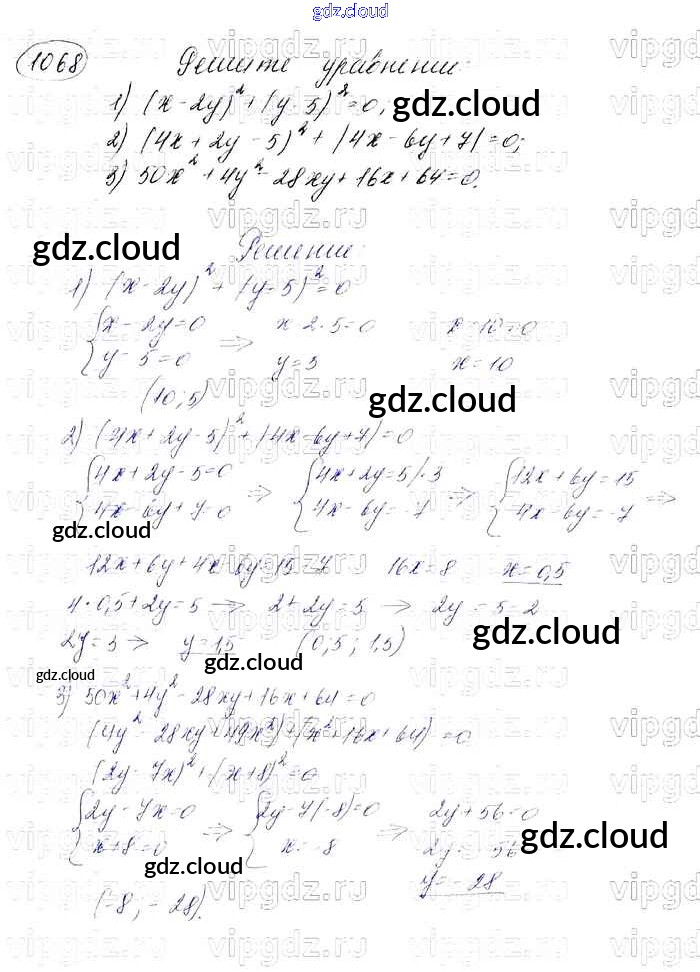 gdz.cloud
1068 Решите уравнения:
1) (x-2y)²+(y-5)²=0,
gdz.cloud
2) (4x+2y-5)²+|4x-6y+7|=0;
3) 50x²+4y²-28xy+16x+64=0.
gdz.cloud
Решение:
1) (x-2y)²+(y-5)²=0
{x-2y=0 => x-2·5=0 x-10=0
{y-5=0 y=5 x=10
(10; 5)
gdz.cloud
2) (4x+2y-5)²+|4x-6y+7|=0
{4x+2y-5=0 => {4x+2y=5|·3 => {12x+6y=15 =>
{4x-6y+7=0 {4x-6y=-7 {4x-6y=-7
gdz.cloud
12x+6y+4x-6y=15-7 16x=8 x=0,5
4·0,5+2y=5 → 2+2y=5 → 2y=5-2
gdz.cloud
2y=3 → y=1,5 (0,5; 1,5)
gdz.cloud
gdz.cloud
3) 50x²+4y²-28xy+16x+64=0
(4y²-28xy+49x²)+(x²+16x+64)=0
(2y-7x)²+(x+8)²=0
{2y-7x=0 => {2y-7(-8)=0 => 2y+56=0
{x+8=0 {x=-8 2y=-56
gdz.cloud
gdz.cloud
y=-28
(-8; -28).